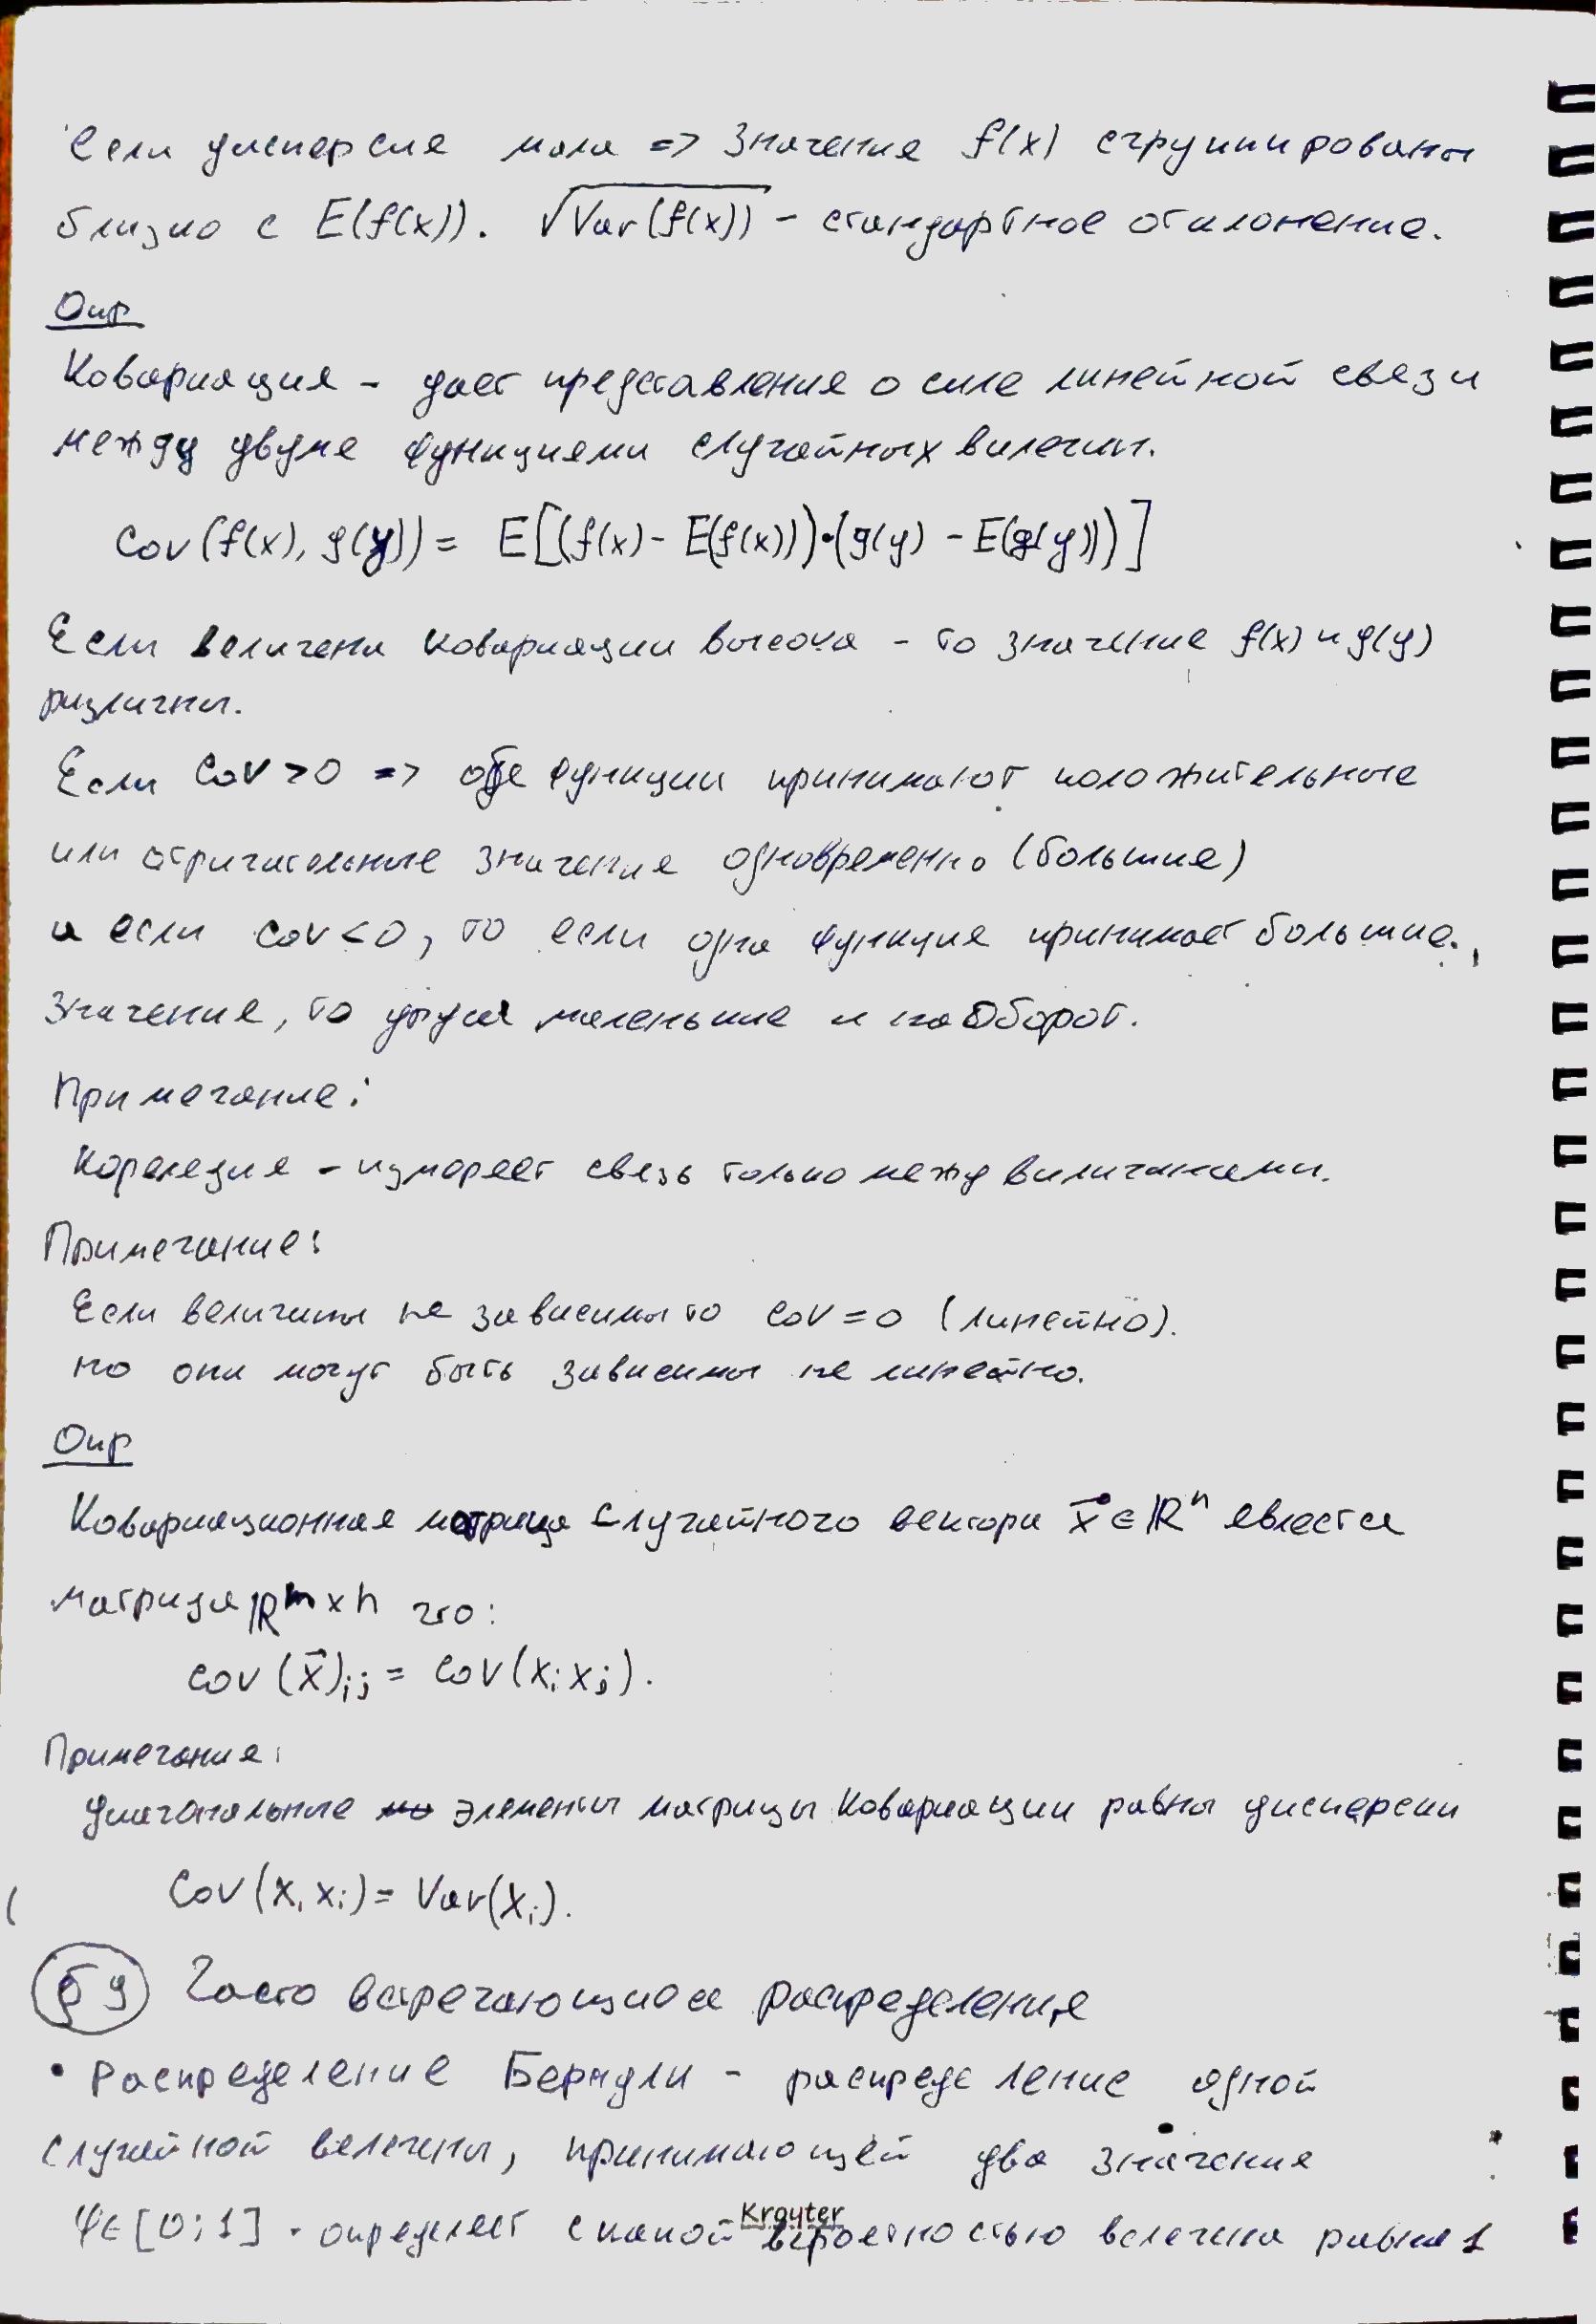 Если дисперсия мала => значения f(x) сгруппированы
близко с E(f(x)). √Var(f(x)) - стандартное отклонение.
Опр
Ковариация - дает представление о силе линейной связи
между двумя функциями случайных виличин.
Cov(f(x), g(y)) = E[(f(x) - E(f(x)))•(g(y) - E(g(y)))]
Если величена ковариации высока - то значение f(x) и g(y)
различны.
Если Cov>0 => обе функции принимают положительные
или отричательные значения одновременно (большие)
а если cov<0, то если одна функция принимает большие
значение, то другая маленькие и наоборот.
Примечание:
Кореляция - измеряет связь только между виличинами.
Примечание:
Если величины не зависимы то cov=0 (линейно).
но они могут быть зависимы не линейно.
Опр
Ковариационная матрица случайного вектора x⃗∈ℝⁿ явлется
матрица ℝᵐ×n что:
cov(x⃗)ᵢⱼ = cov(xᵢ xⱼ).
Примечание:
диагональные элементы матрицы ковариации равны дисперсии
Cov(xᵢ xᵢ) = Var(xᵢ).
§9 Часто встречающиеся распределения
• Распределение Бернули - распределение одной
случайной величены, принимающей два значения
φ∈[0;1] · определяет с какой вероятностью величена равна 1
Krayter